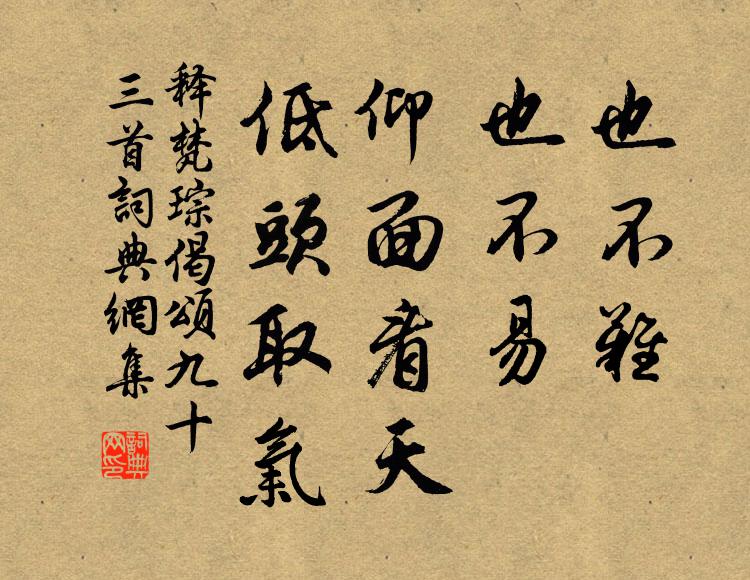 也不難
也不易
仰面看天
低頭取氣
释梵琮偈頌九十
三首詞典網集
詞典
网印